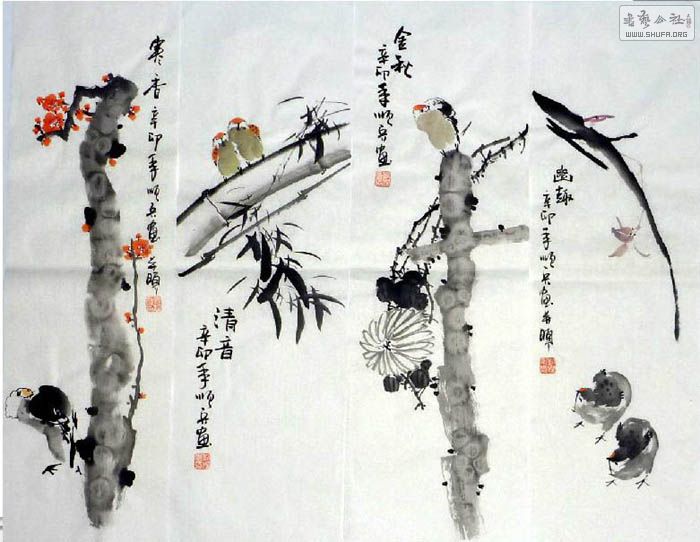 書藝公社
WWW.SHUFA.ORG
寒香
辛卯年順兵畫
清音
辛卯年順兵畫
金秋
辛卯年順兵畫
幽趣
辛卯年順兵畫